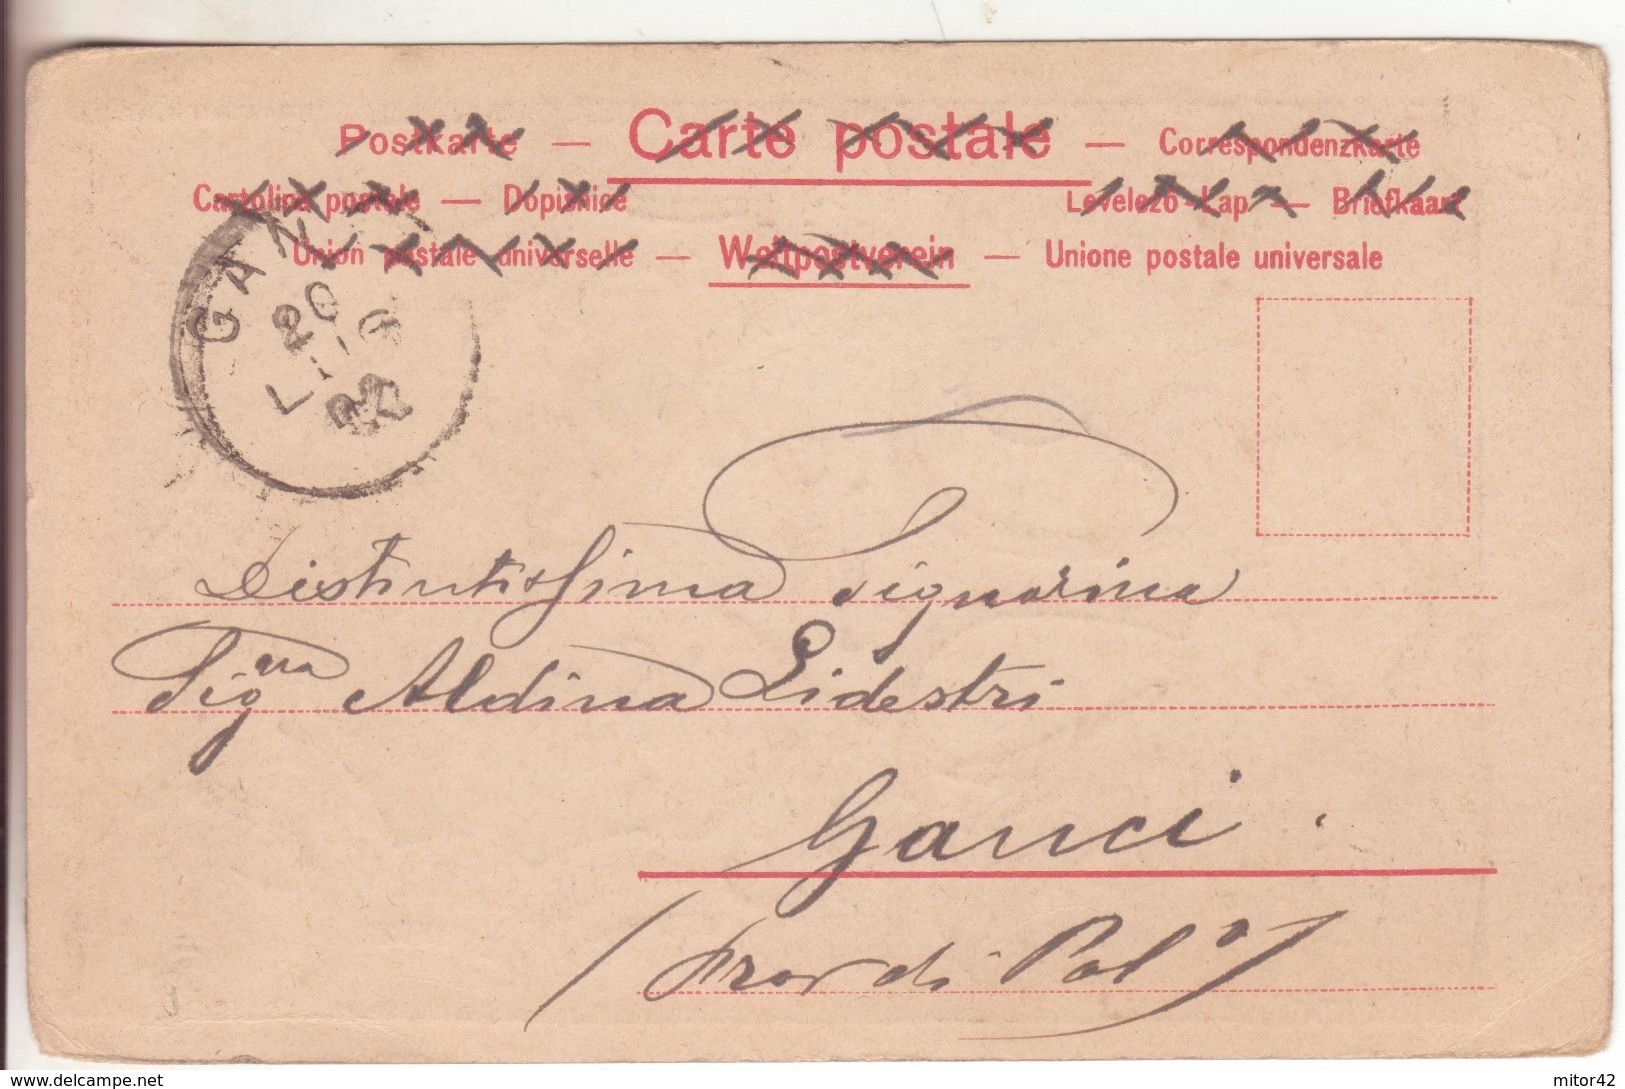 Postkarte — Carte postale — Correspondenzkarte
Cartolina postale — Dopisnice Levelezö-Lap — Briefkaart
Union postale universelle — Weltpostverein — Unione postale universale
GAN
20
LUG
02
Distintissima Signorina
Sigⁿᵃ Aldina Lidestri
Ganci.
(Prov di Palᵒ)
www.delcampe.net
mitor42